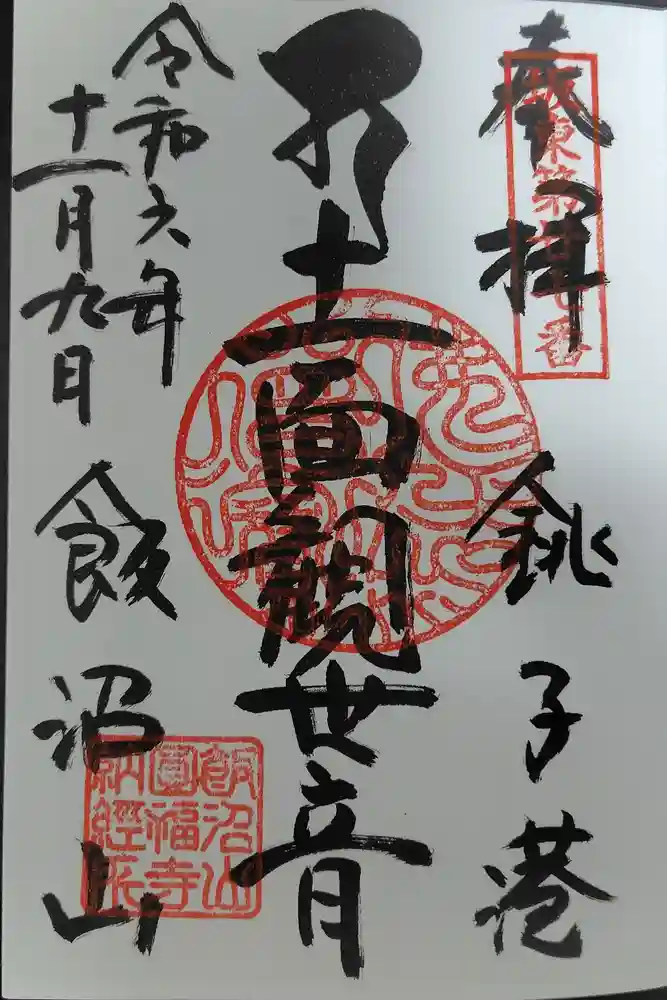 奉拝
坂東第廿七番
銚子港
十一面観世音
令和六年
十一月九日
飯沼山
飯沼山
圓福寺
納経所